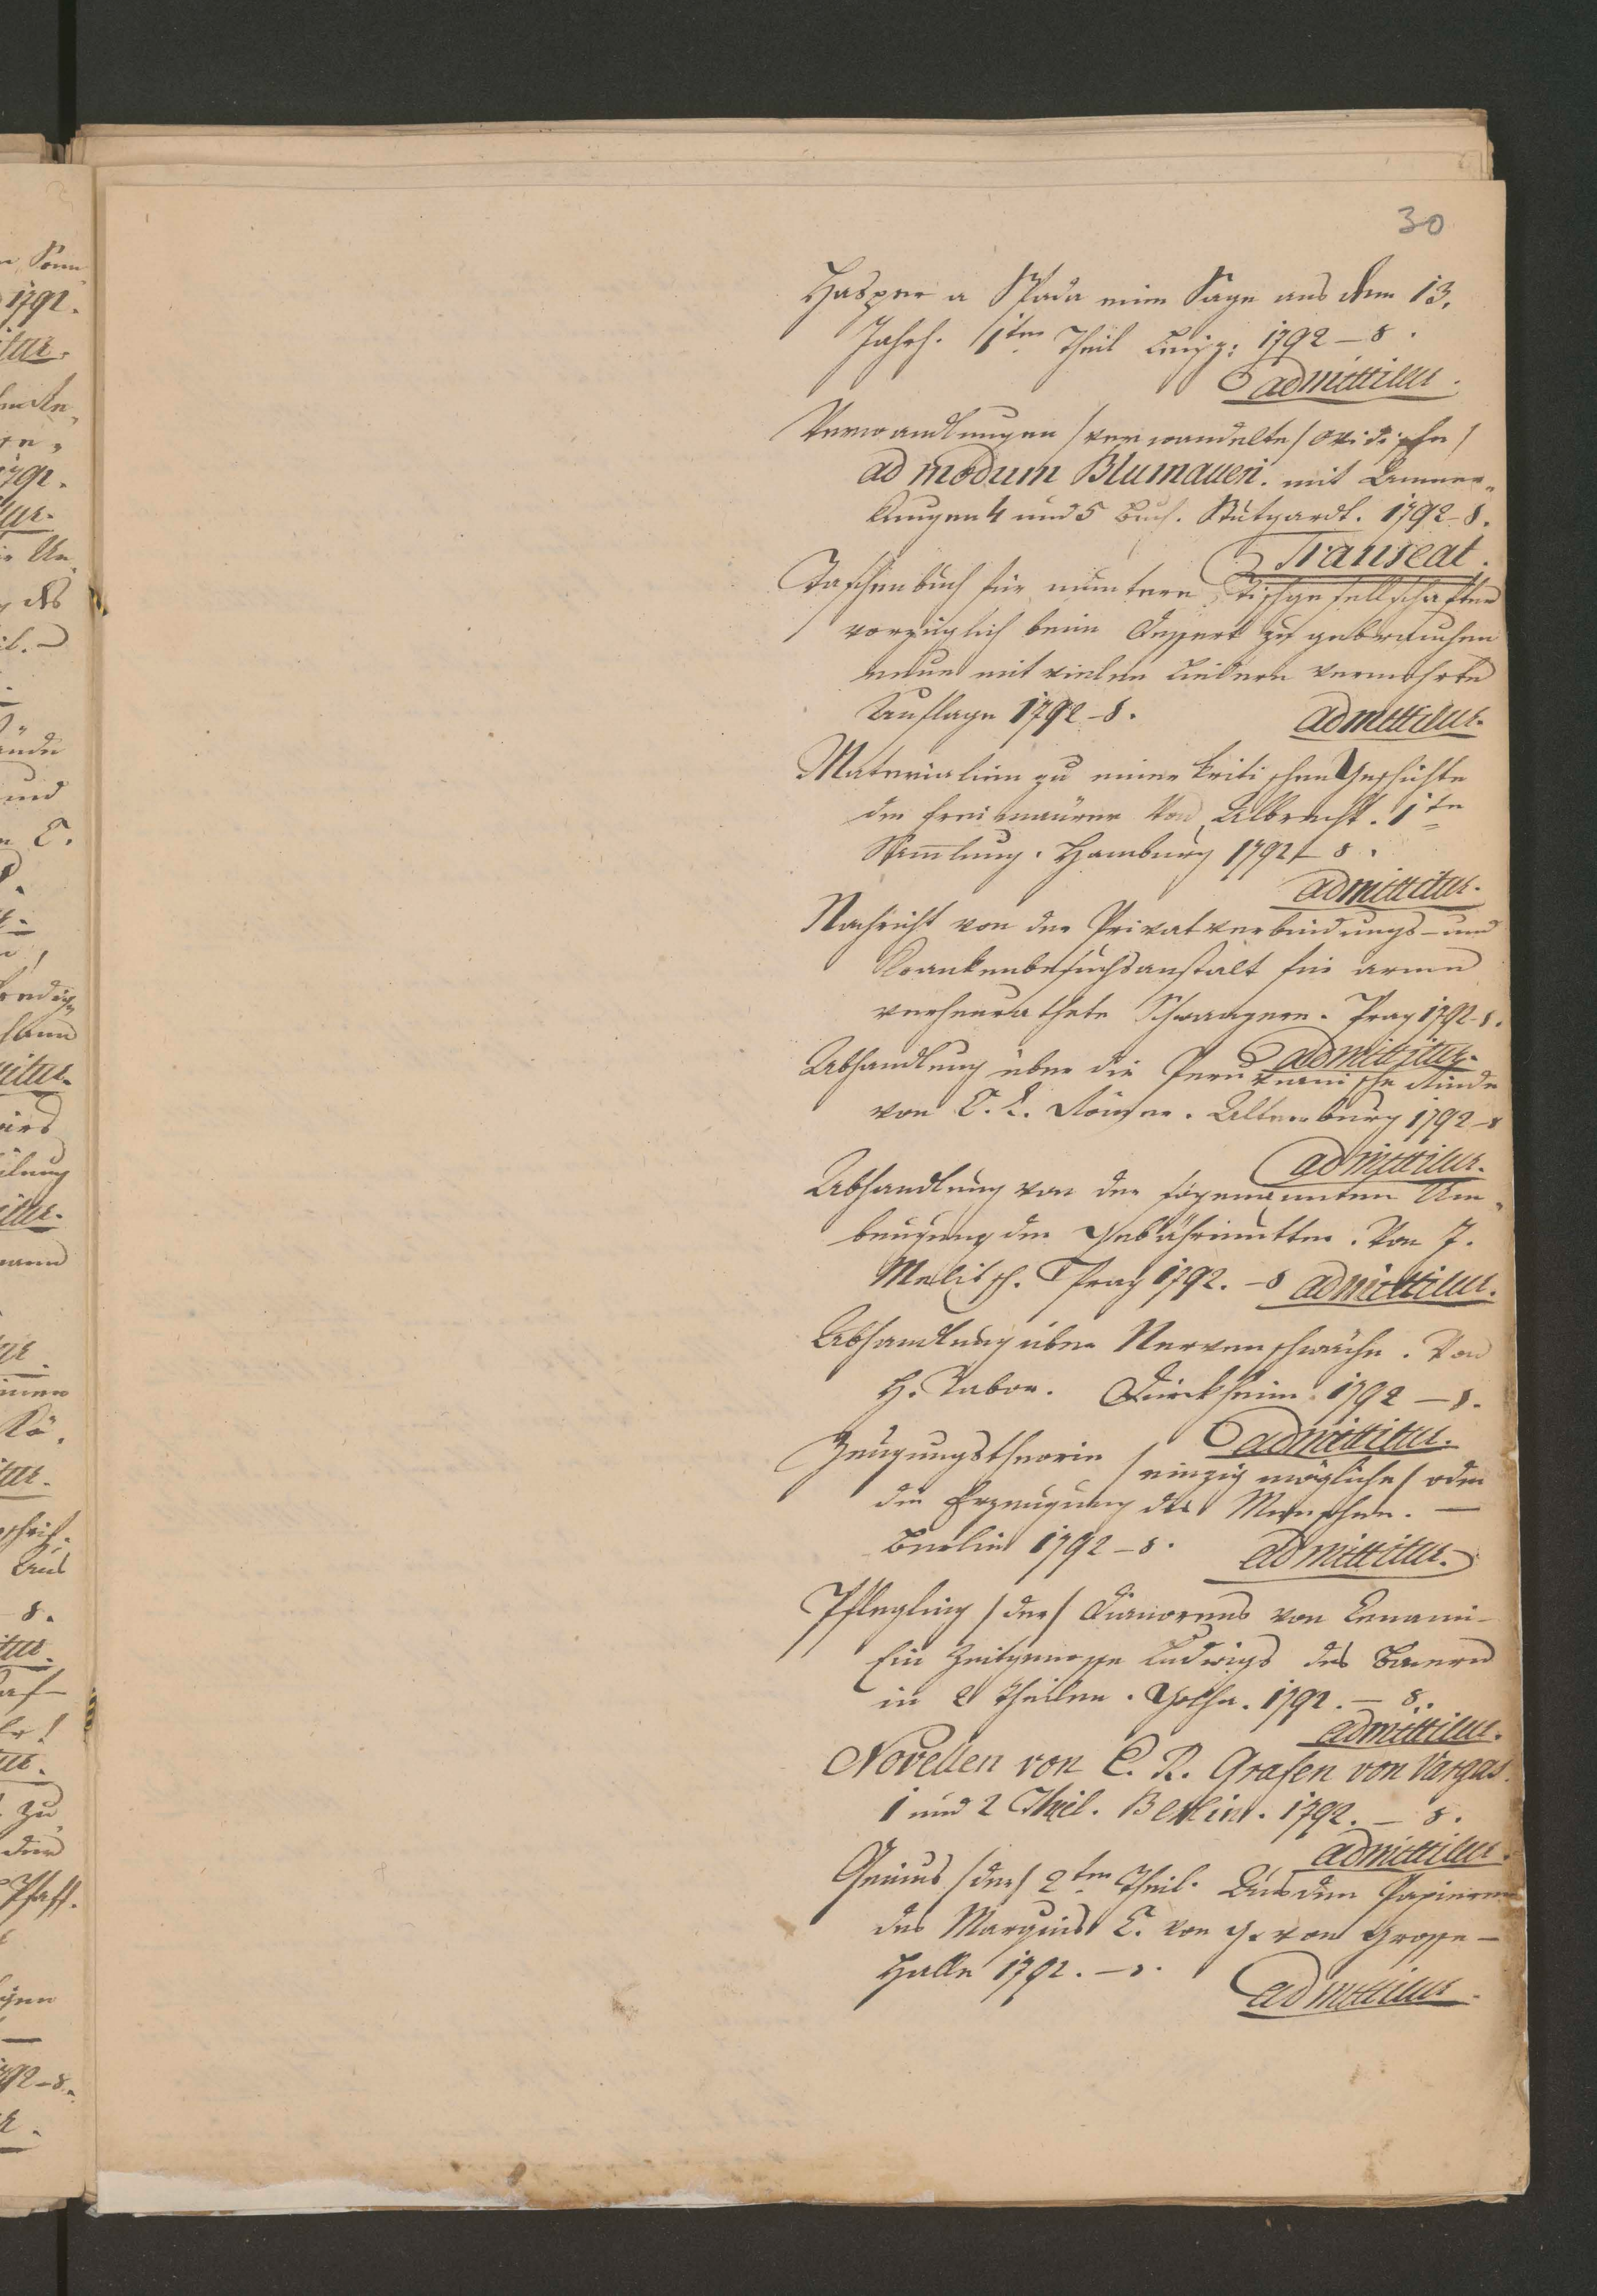 30
Hasper a Spada eine Sage aus dem 13.
Jahrh. 1ter Theil Leipz: 1792 – 8.
admittitur.
Verwandlungen /verwandelte/ ovidische/
ad modum Blumaueri. mit Anmer„
kungen 4 und 5 Buch. Stutgardt. 1792 – 8.
Transeat.
Taschenbuch für muntere Tischgesellschaften
vorzüglich beim Dessert zu gebrauchen
neue mit vielen Liedern vermehrte
Auflage 1792 – 8.
admittitur.
Materialien zu einer kritischen Geschichte
der Freimaurer Von Albrecht. 1te
Sammlung. Hamburg 1792 – 8.
admittitur.
Nachricht von der Privatverbindungs- und
Krankenbesuchsanstalt für arme
verheurathete Schwangere. Prag 1792 – 8.
admittitur.
Abhandlung über die Peruvianische Rinde
von C. L. Römer. Altenburg 1792 – 8
admittitur.
Abhandlung von der sogenannten Um„
beugung der Gebährmutter. Von J.
Melitsch. Prag 1792. – 8 admittitur.
Abhandlung über Nervenschwäche. Von
H. Tabor. Dürckheim 1792 – 8.
admittitur.
Zeugungstheorie /einzig mögliche/ oder
die Erzeugung des Menschen. —
Berlin 1792 – 8.
admittitur.
Pflegling /der/ Dianorens von
Ein Zeitgenosse Ludwigs des Baiern
in 2 Theilen. Gotha. 1792. – 8.
admittitur.
Novellen von C. R. Grafen von Vargas.
1 und 2 Theil. Berlin. 1792. – 8.
admittitur.
Genius /der/ 2ter Theil. Aus den Papieren
des Marquis C. von G. von Grosse –
Halle 1792. – 8.
admittitur.